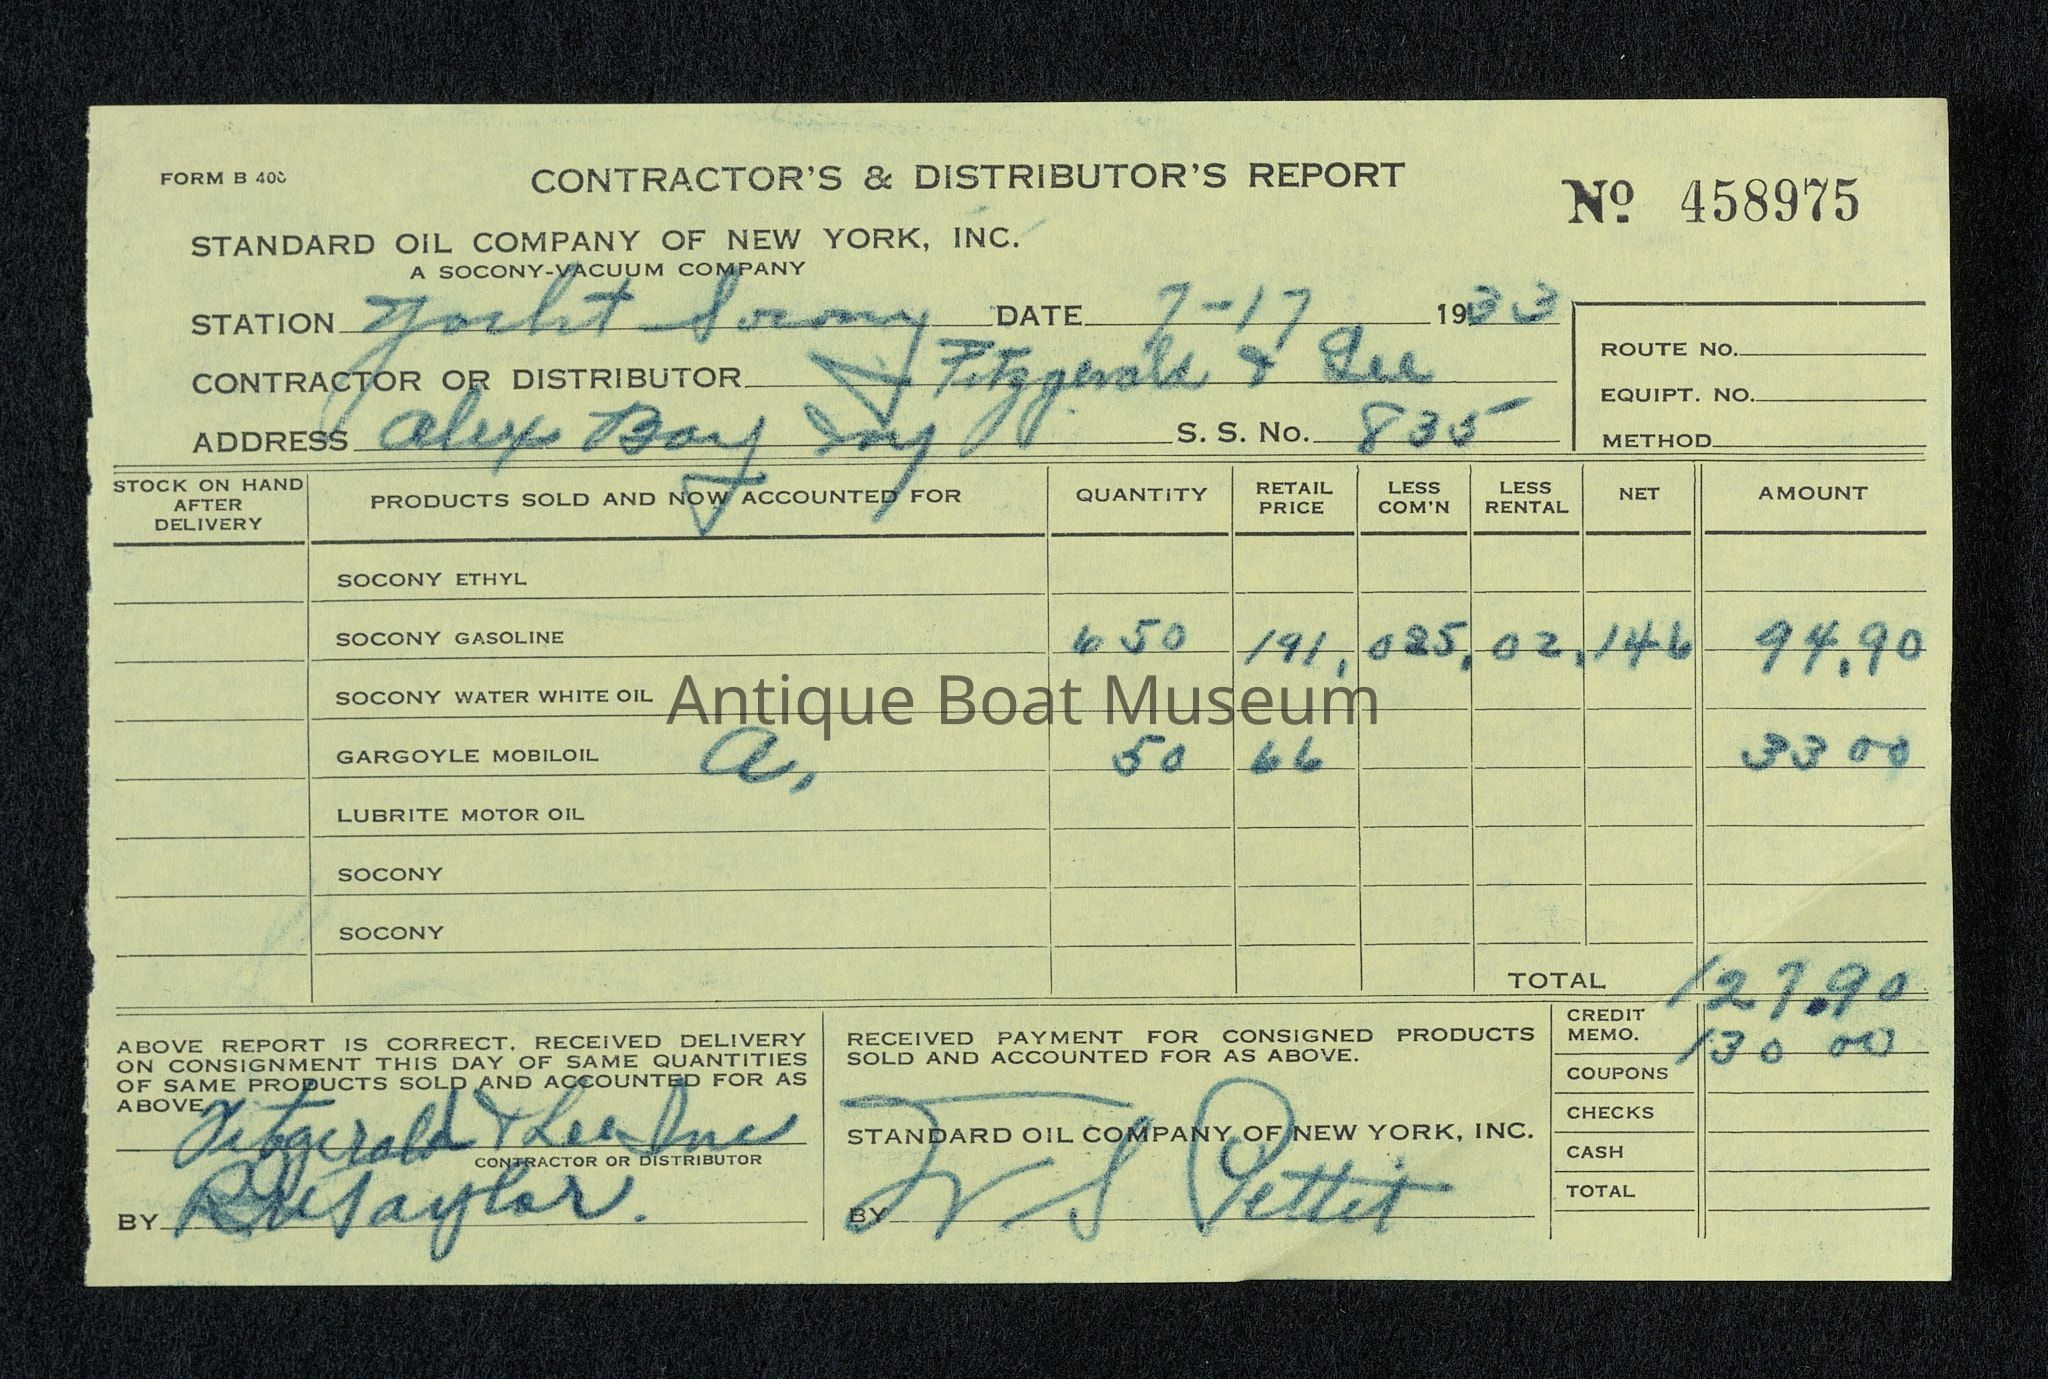 FORM B 400
CONTRACTOR'S & DISTRIBUTOR'S REPORT
No 458975
STANDARD OIL COMPANY OF NEW YORK, INC.
A SOCONY-VACUUM COMPANY
STATION Yacht Socony DATE 7-17 1933
CONTRACTOR OR DISTRIBUTOR Fitzgerald & Lee
ADDRESS Alex Bay NY S. S. No. 835
ROUTE No.
EQUIPT. NO.
METHOD
STOCK ON HAND AFTER DELIVERY PRODUCTS SOLD AND NOW ACCOUNTED FOR QUANTITY RETAIL PRICE LESS COM'N LESS RENTAL NET AMOUNT
SOCONY ETHYL
SOCONY GASOLINE 650 191, 025, 02, 146 94.90
SOCONY WATER WHITE OIL
Antique Boat Museum
GARGOYLE MOBILOIL A, 50 66 33 00
LUBRITE MOTOR OIL
SOCONY
SOCONY
TOTAL 127.90
ABOVE REPORT IS CORRECT. RECEIVED DELIVERY
ON CONSIGNMENT THIS DAY OF SAME QUANTITIES
OF SAME PRODUCTS SOLD AND ACCOUNTED FOR AS
ABOVE
Fitzgerald & Lee Inc
CONTRACTOR OR DISTRIBUTOR
BY Taylor.
RECEIVED PAYMENT FOR CONSIGNED PRODUCTS
SOLD AND ACCOUNTED FOR AS ABOVE.
STANDARD OIL COMPANY OF NEW YORK, INC.
BY S Pettit
CREDIT MEMO. 130 00
COUPONS
CHECKS
CASH
TOTAL